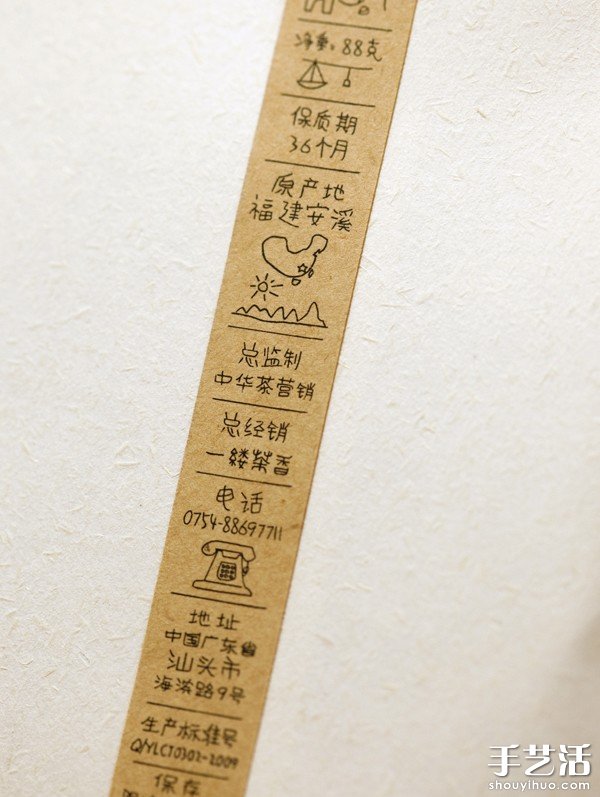 净重: 88克
保质期
36个月
原产地
福建安溪
总监制
中华茶营销
总经销
一缕茶香
电话
0754-88697711
地址
中国广东省
汕头市
海滨路9号
生产标准号
Q/YLCT0302-2009
保存
手艺活
shouyihuo.com